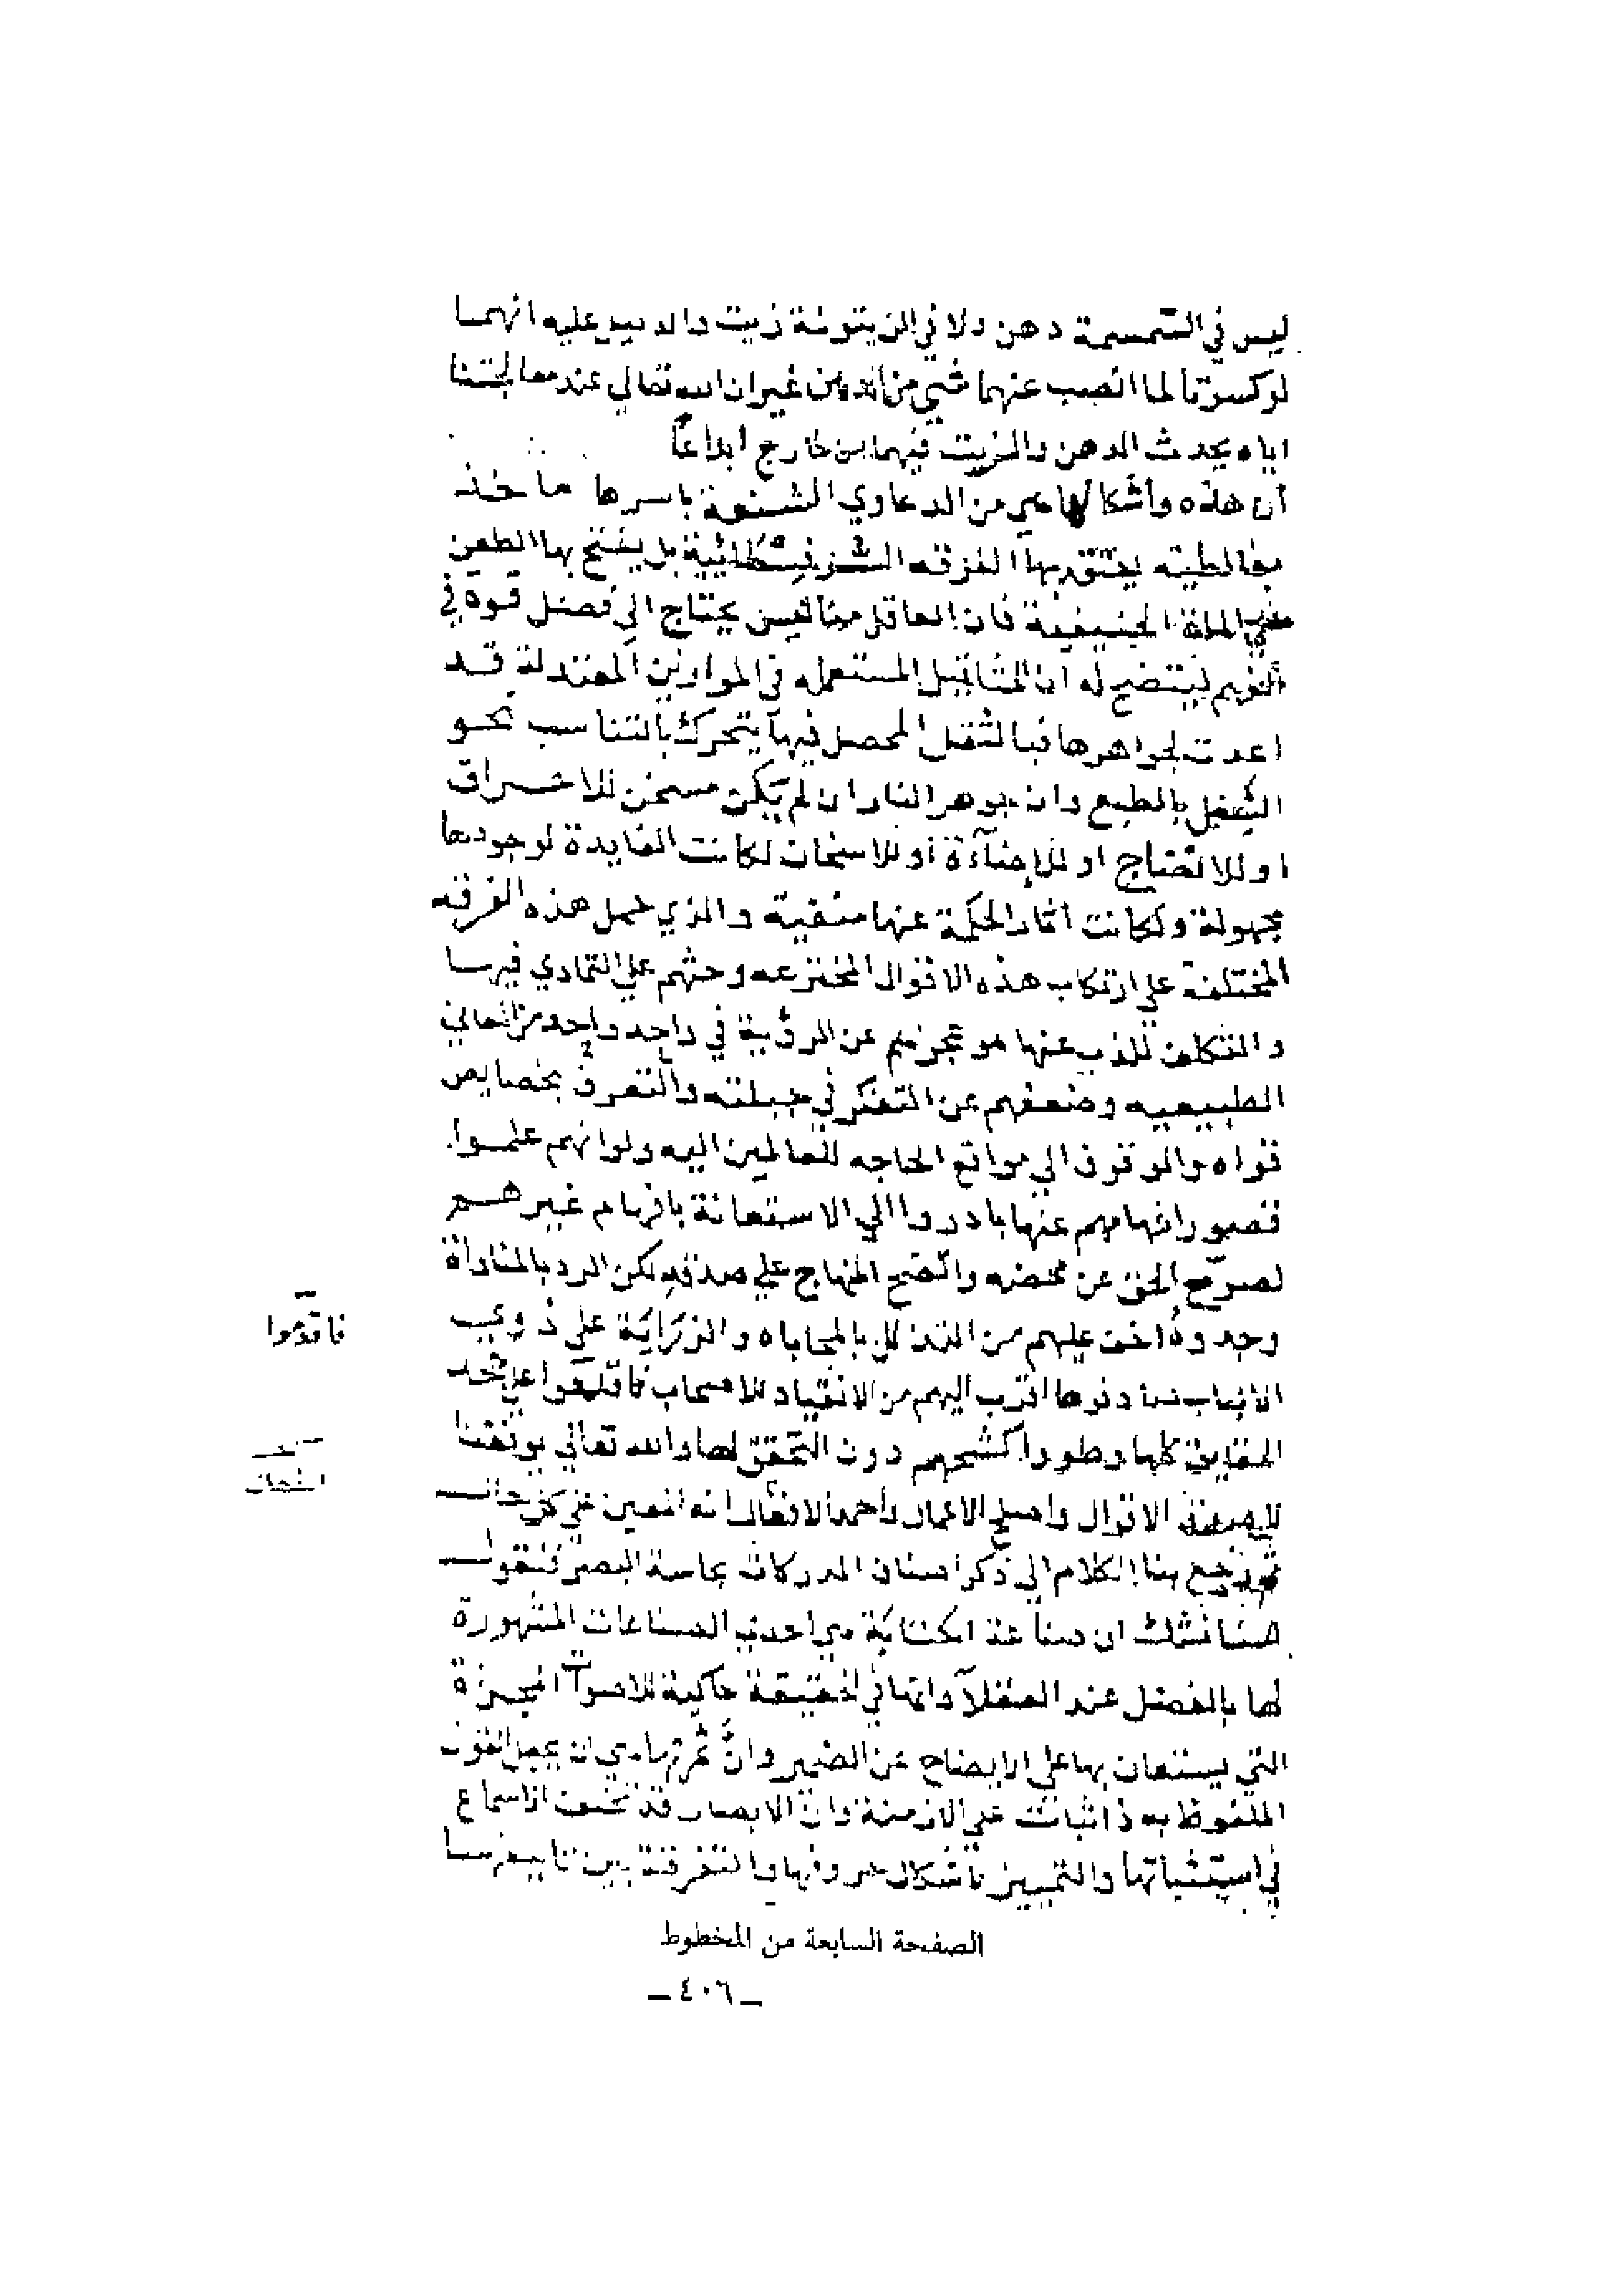 ليس في السمسمة دهن ولا في الزيتونة زيت والدليل عليه انهما
لو كسرتا لما انصب عنهما شي من الدهن غير ان الله تعالي عند معالجتنا
اياه يحدث الدهن والزيت فيهما من خارج ابداعاً
ان هذه وأشكالها هي من الدعاوي الشنعة باسرها ماخذ
مغالطية يغتر بها الفرقه السوفسطائية بل يفتتح بها الطعن
علي الملة الحنيفية فان العاقل منا ليس يحتاج الي فضل قوة في
الفهم ليتضح له ان المثاقيل المستعمله في الموازين المعتدلة قد
اعدت لجواهرها فبالثقل المحصل فيها يتحرك بالتناسب نحو
الثقيل بالطبع وان جوهر النار ان لم يكن مسخن للاحراق
او للانضاج او للإضآءة أو للاسخان لكانت الفايدة لوجودها
مجهولة ولكانت اثار الحكمة عنها منفية والذي حمل هذه الفرقه
المختلفة علي ارتكاب هذه الاقوال المخترعه وحثهم علي التمادي فيها
والتكلف للذب عنها هو عجزهم عن الرؤية في واحد واحد من المعاني
الطبيعيه وضعفهم عن التفكر في جبلته والتعرف بخصايص
قواه والوقوف الي مواقع الحاجه للعالمين اليه ولو انهم علموا
قصور افهامهم عنها بادروا الي الاستعانة بافهام غيرهم
لصرح الحق عن محضه واتضح المنهاج علي صدقه لكن الرد بالمناداة
وجدوهُ اخف عليهم من التذلل بالمحاباه والزراية علي ذوي
الالباب دنوها اقرب اليهم من الانقياد للاصحاب فاقدموا علي جحد
الحقايق كلها وطووا كشحهم دون التحقق لها والله تعالي يوفقنا
لاصدق الاقوال واصلح الاعمال واحمد الافعال انه المعين علي كل حال
ثم نرجع بنا الكلام الي ذكر اصناف المدركات بحاسة البصر فنقول
لسنا نشك ان صناعة الكتابة هي احدي الصناعات المشهورة
لها بالفضل عند العقلآ وانها في الحقيقة حاكية للاصوات المجهزة
التي يستعان بها علي الايضاح عن الضمير وانّ ثمرتها هي ان يجعل القول
الملفوظ به ذا ثبات علي الازمنة وان الابصار قد تخلف الاسماع
في استثباتها والتمييز باشكال حروفها والتفرقة بين تاليفها
فاقدموا
الصفحة السابعة من المخطوط
ـ ٤٠٦ ـ